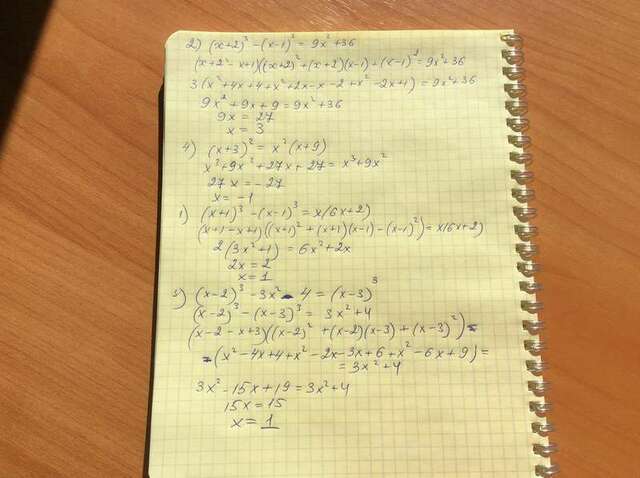 2) (x+2)³ - (x-1)³ = 9x² + 36
(x+2 - x+1)((x+2)² + (x+2)(x-1) + (x-1)² = 9x² + 36
3 (x² + 4x + 4 + x² + 2x - x - 2 + x² - 2x + 1) = 9x² + 36
9x² + 9x + 9 = 9x² + 36
9x = 27
x = 3
4) (x+3)² = x² (x+9)
x³ + 9x² + 27x + 27 = x³ + 9x²
27x = -27
x = -1
1) (x+1)³ - (x-1)³ = x(6x+2)
(x+1 - x+1)((x+1)² + (x+1)(x-1) - (x-1)²) = x(6x+2)
2(3x² + 1) = 6x² + 2x
2x = 2
x = 1
3) (x-2)³ - 3x² - 4 = (x-3)³
(x-2)³ - (x-3)³ = 3x² + 4
(x-2 - x+3)((x-2)² + (x-2)(x-3) + (x-3)²) =
= (x² - 4x + 4 + x² - 2x - 3x + 6 + x² - 6x + 9) =
= 3x² + 4
3x² - 15x + 19 = 3x² + 4
15x = 15
x = 1